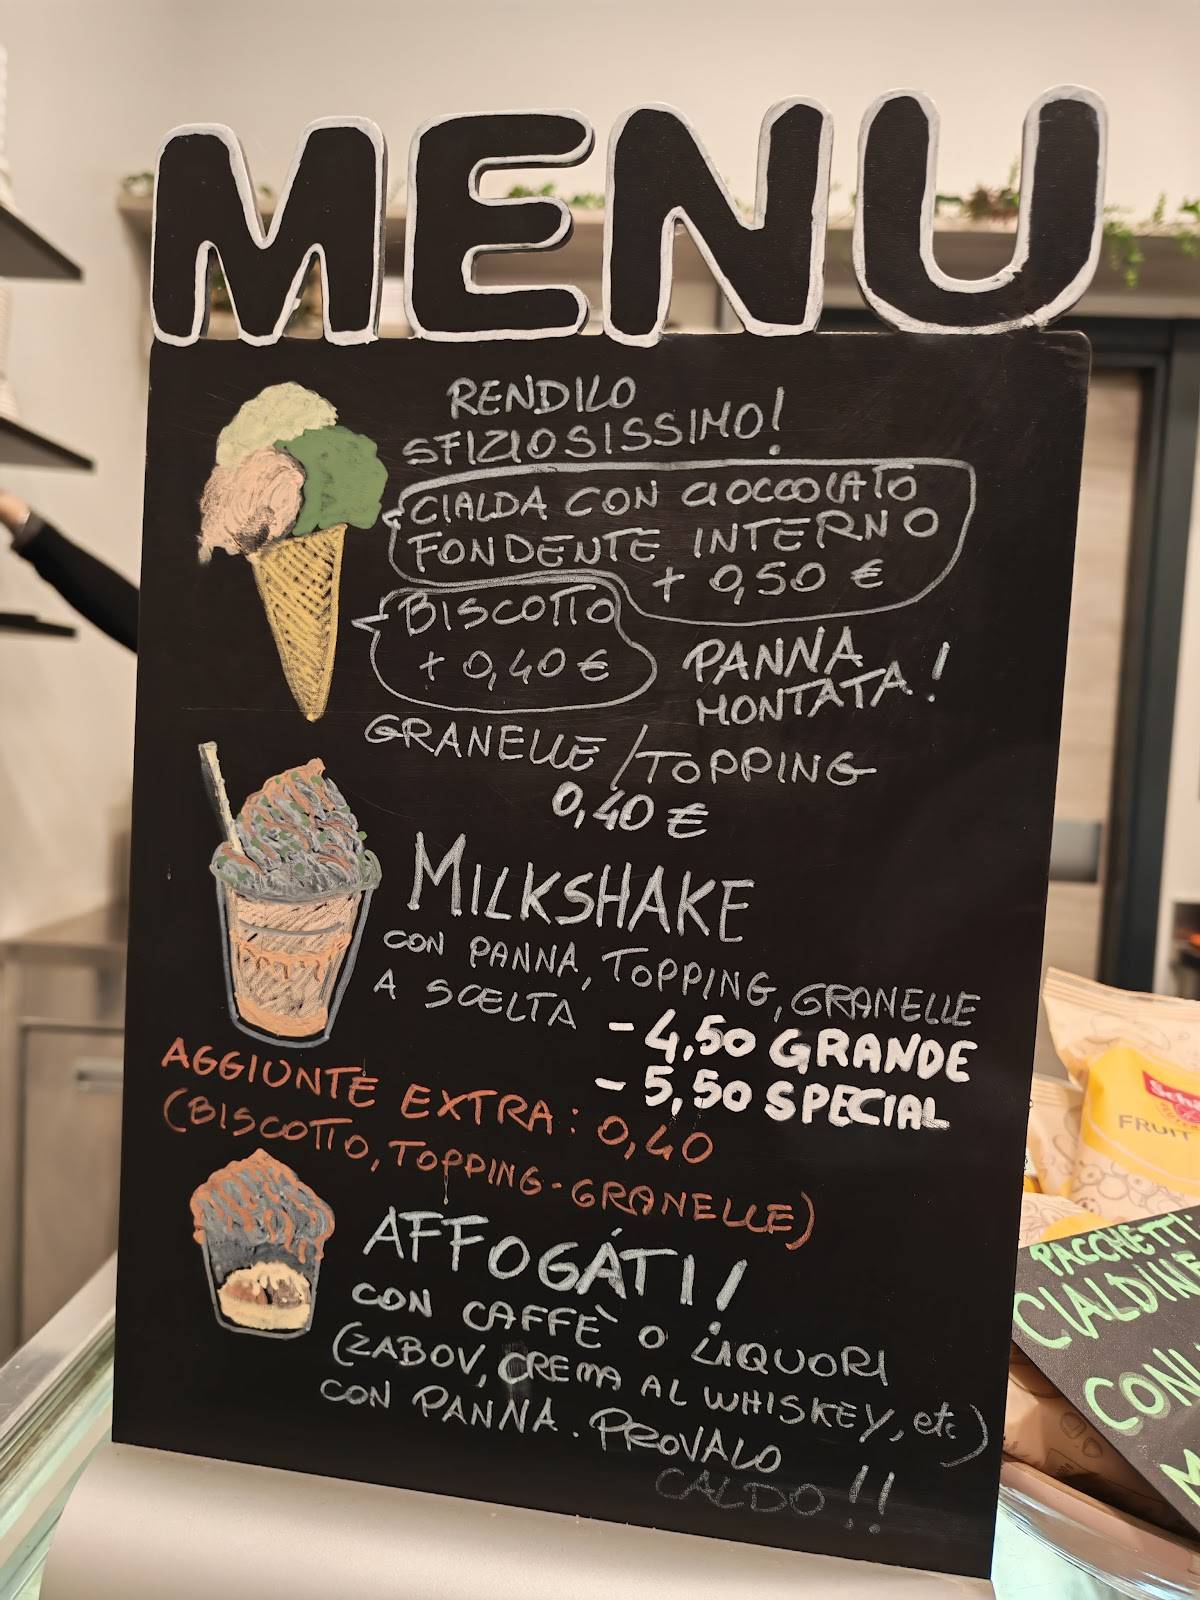 MENU
RENDILO
SFIZIOSISSIMO!
CIALDA CON CIOCCOLATO
FONDENTE INTERNO
+ 0,50 €
BISCOTTO
+ 0,40 €
PANNA
MONTATA!
GRANELLE/TOPPING
0,40 €
MILKSHAKE
CON PANNA, TOPPING, GRANELLE
A SCELTA
- 4,50 GRANDE
- 5,50 SPECIAL
AGGIUNTE EXTRA: 0,40
(BISCOTTO, TOPPING-GRANELLE)
AFFOGÁTI!
CON CAFFÈ O LIQUORI
(ZABOV, CREMA AL WHISKEY, etc)
CON PANNA. PROVALO
CALDO!!
FRUIT
PACCHETTI